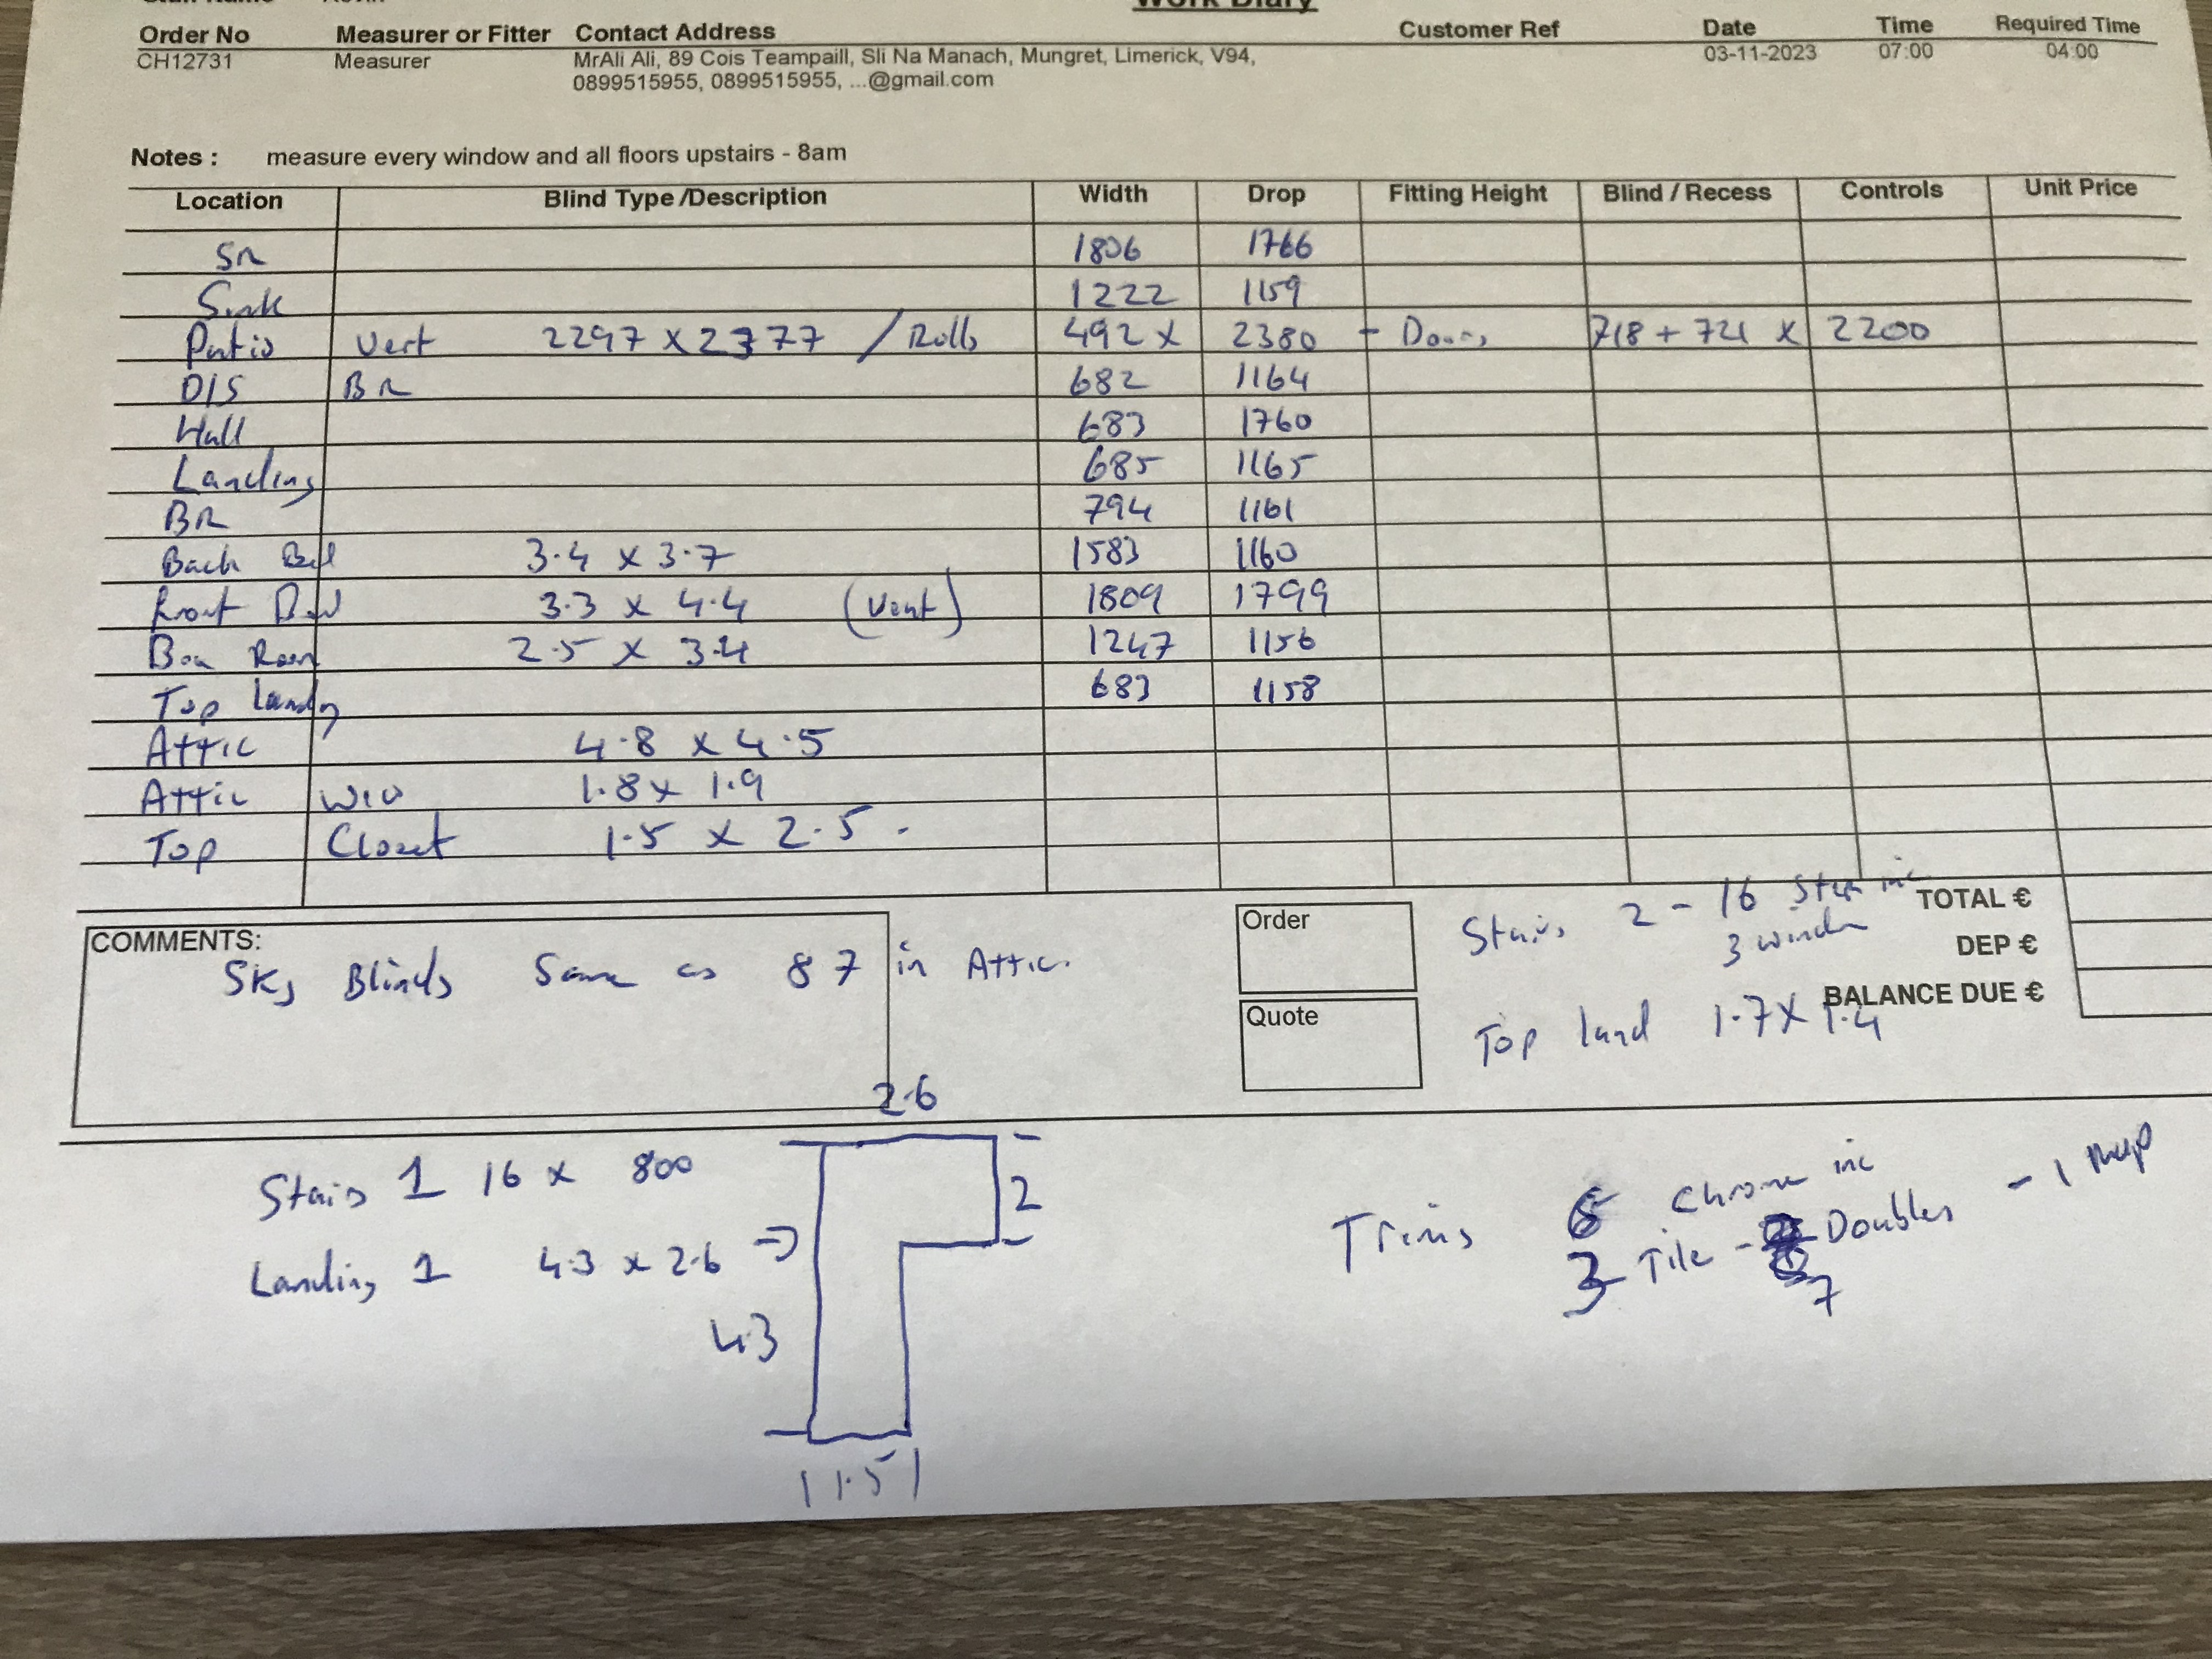 Work Diary
Order No Measurer or Fitter Contact Address Customer Ref Date Time Required Time
CH12731 Measurer MrAli Ali, 89 Cois Teampaill, Sli Na Manach, Mungret, Limerick, V94, 03-11-2023 07:00 04:00
0899515955, 0899515955, ...@gmail.com
Notes : measure every window and all floors upstairs - 8am
Location Blind Type /Description Width Drop Fitting Height Blind / Recess Controls Unit Price
SR 1806 1766
Sink 1222 1159
Patio Vert 2297 x 2377 / Rolls 492 x 2380 + Doors 718 + 721 x 2200
D/S BR 682 1164
Hall 683 1760
Landing 685 1165
BR 794 1161
Back Bed 3.4 x 3.7 1583 1160
Front Bed 3.3 x 4.4 (Vent) 1809 1799
Box Room 2.5 x 3.4 1247 1156
Top Landing 683 1158
Attic 4.8 x 4.5
Attic WIW 1.8 x 1.9
Top Closet 1.5 x 2.5 -
COMMENTS:
Sky Blinds Same as 87 in Attic.
Order
Quote
Stairs 2 - 16 Steps inc
3 winder
TOTAL €
DEP €
BALANCE DUE €
Top land 1.7 x 1.4
2.6
Stairs 1 16 x 800
2
Landing 1 4.3 x 2.6 →
4.3
1.5
Trims 6 Chrome inc
3 Tile - Doubles - 1 Ramp
7